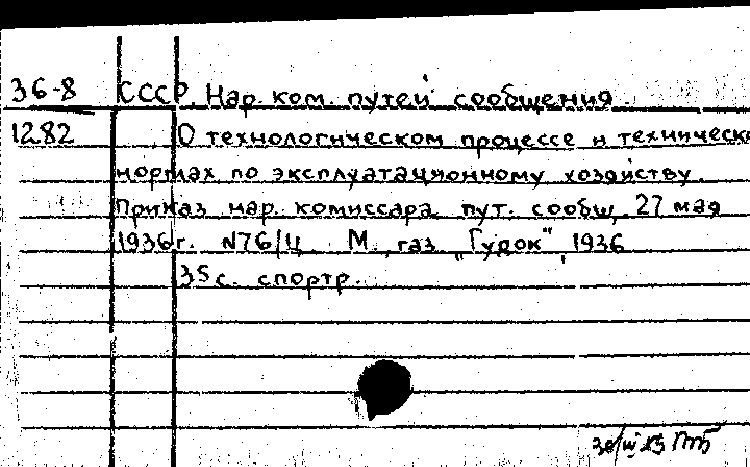 36-8 СССР. Нар. ком. путей сообщения.
1282 О технологическом процессе и техническ
нормах по эксплуатационному хозяйству.
Приказ нар. комиссара пут. сообщ. 27 мая
1936г. N76/Ц. М., газ. "Гудок", 1936
35 с. спортр.